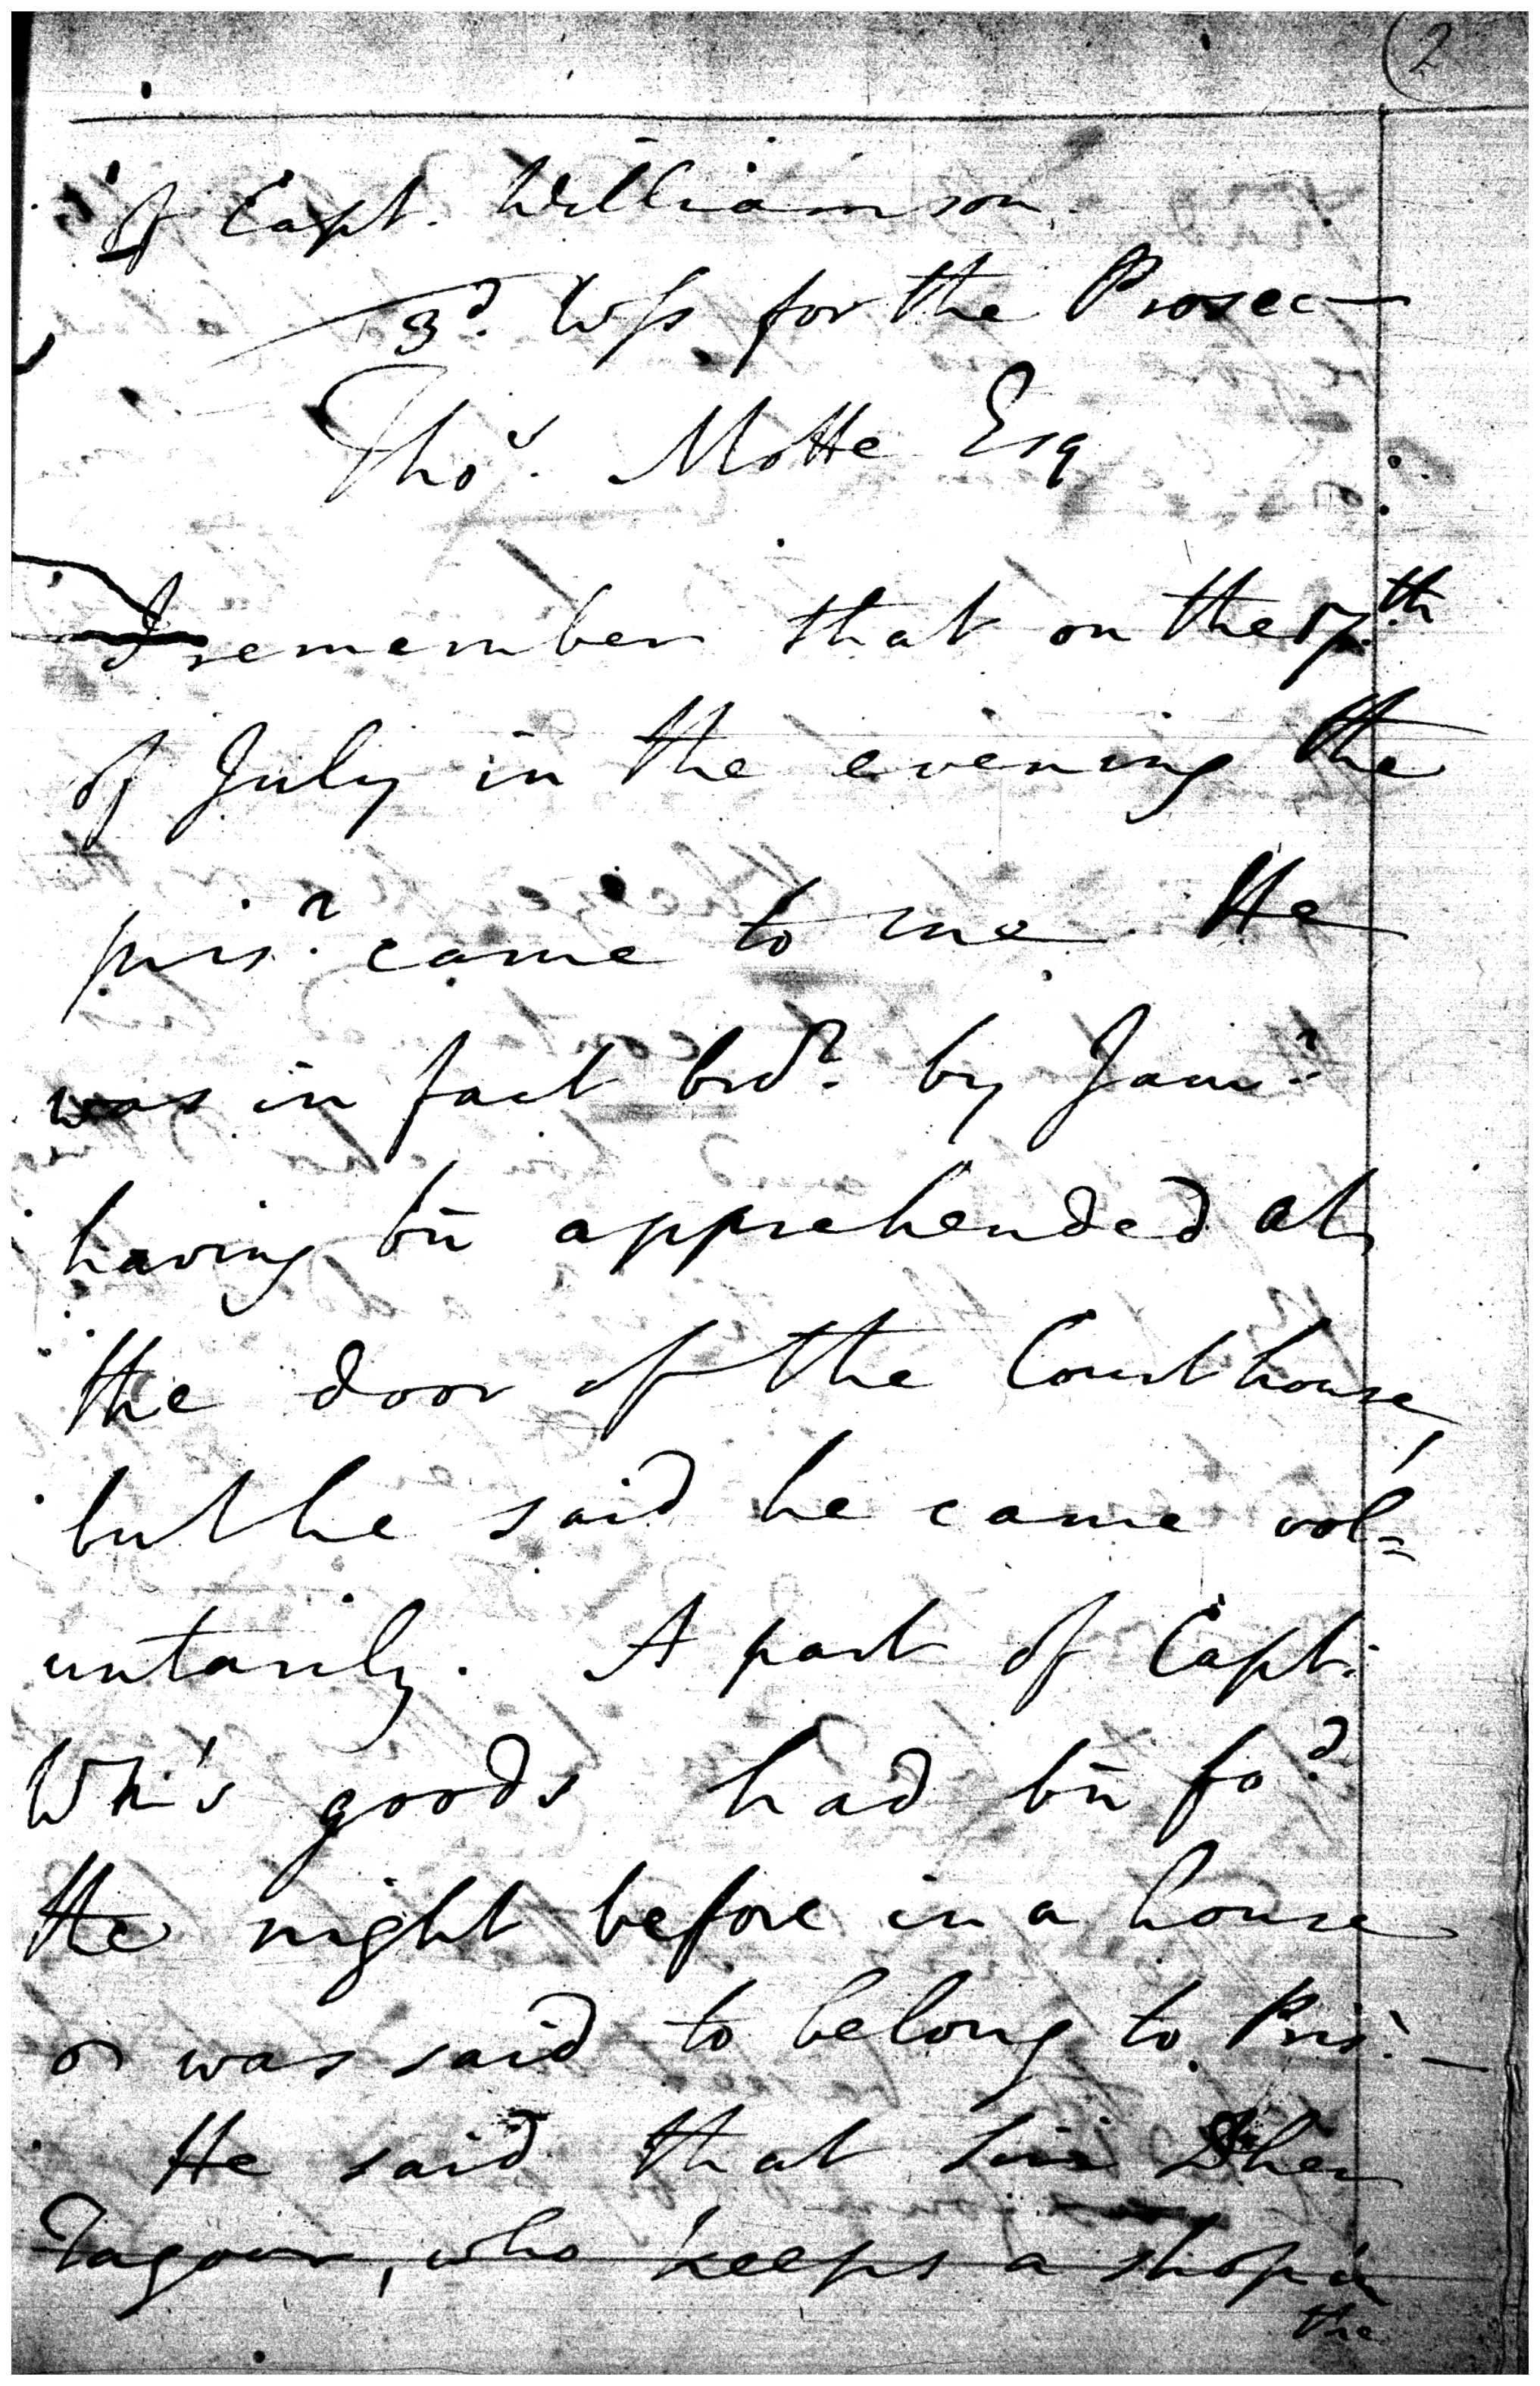 (2
of Capt. Williamson.
3d. Wss for the Prosec—
Thos. Motte Esq
I remember that on the 17th
of July in the evening the
prisr. came to me. He
was in fact brot. by Jamr.
having bn apprehended at
the door of the Court house,
but he said he came vol=
untarily. A part of Capt.
Wm's goods had bn fod.
the night before in a house
or was said to belong to Pris.—
He said that
Tagoor, who keeps a shop in
the